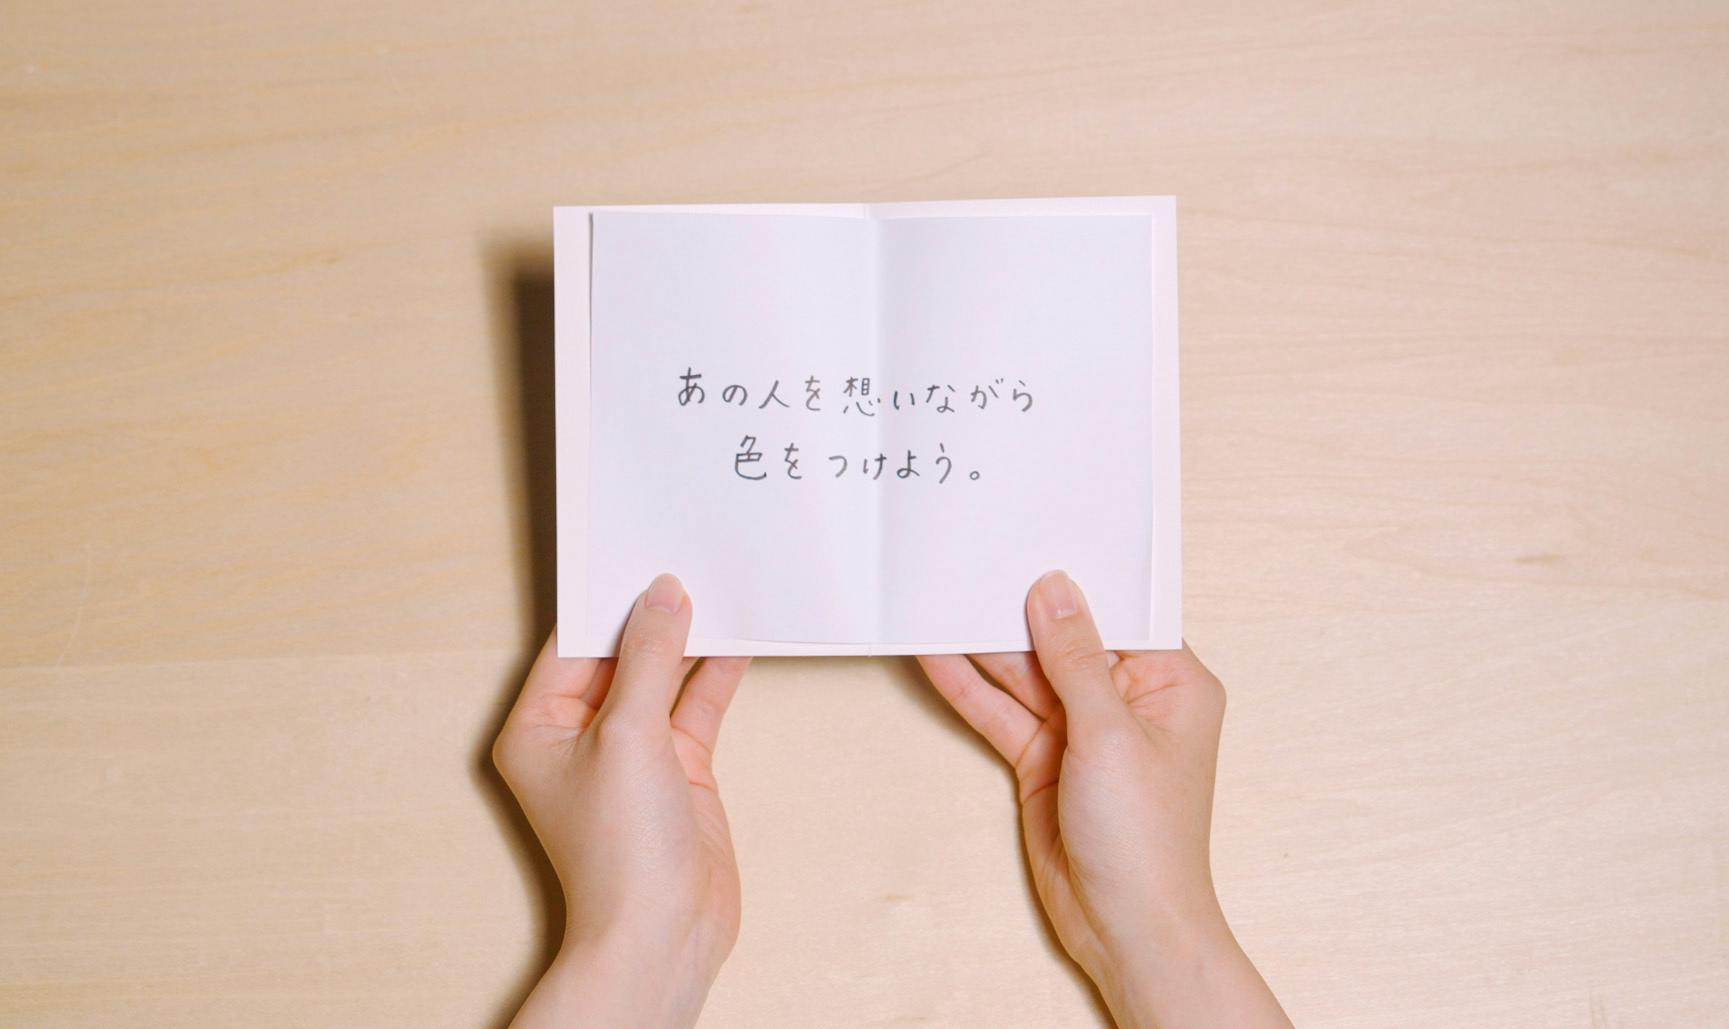 あの人を想いながら
色をつけよう。